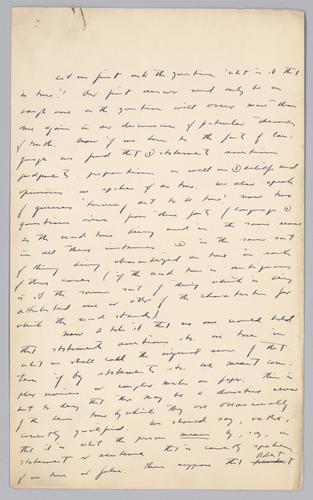 Let us first ask the question 'what is it that
is true?' Our first answer need only be a
rough one as the question will occur more than
once again in our discussion of particular theories
of truth. Now if we turn to the facts of lan-
guage we find that ① statements assertions
judgments propositions as well as ② beliefs and
opinions are spoken of as true. We also speak
of guesses 'turning out to be true'. Now two
questions arise from these facts of language ①
is the word true being used in the same sense
in all these instances ② is the same sort
of thing being characterized as true in each
of these cases (if the word true is ambiguous
is it the same sort of thing which is being
attributed one or other of the characters for
which the word stands)
Now I take it that no one would hold
that statements assertions etc. are true in
what we shall call the original sense of that
term if by statements etc. are meant com-
plex noises or complex marks on paper. This is
not to deny that there may be a derivative sense
of the term true by which they are occasionally
correctly qualified. We should say, rather,
that it is what the person means by, say, a
statement or sentence that is correctly spoken
of as true or false. Then suppose that Robert